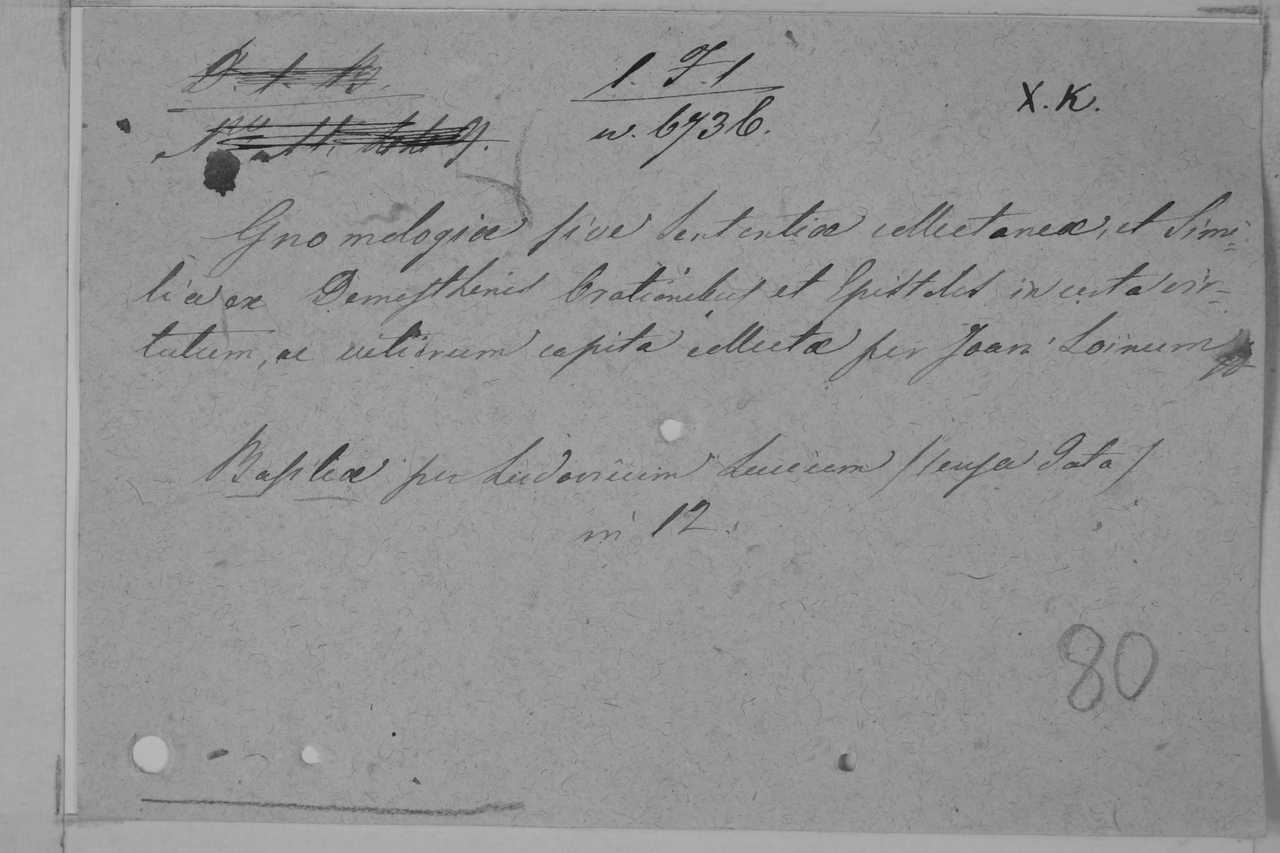 1. F. 1
X. K.
n. 6736.
Gnomologiæ sive Sententiæ collectaneæ, et Simi-
lia ex Demosthenis Orationibus et Epistolis in certa vir-
tutum, ac vitiorum capita collectæ per Joan: Loinum
Basileæ per Ludovicum Lucium (senza Data)
in 12.
80